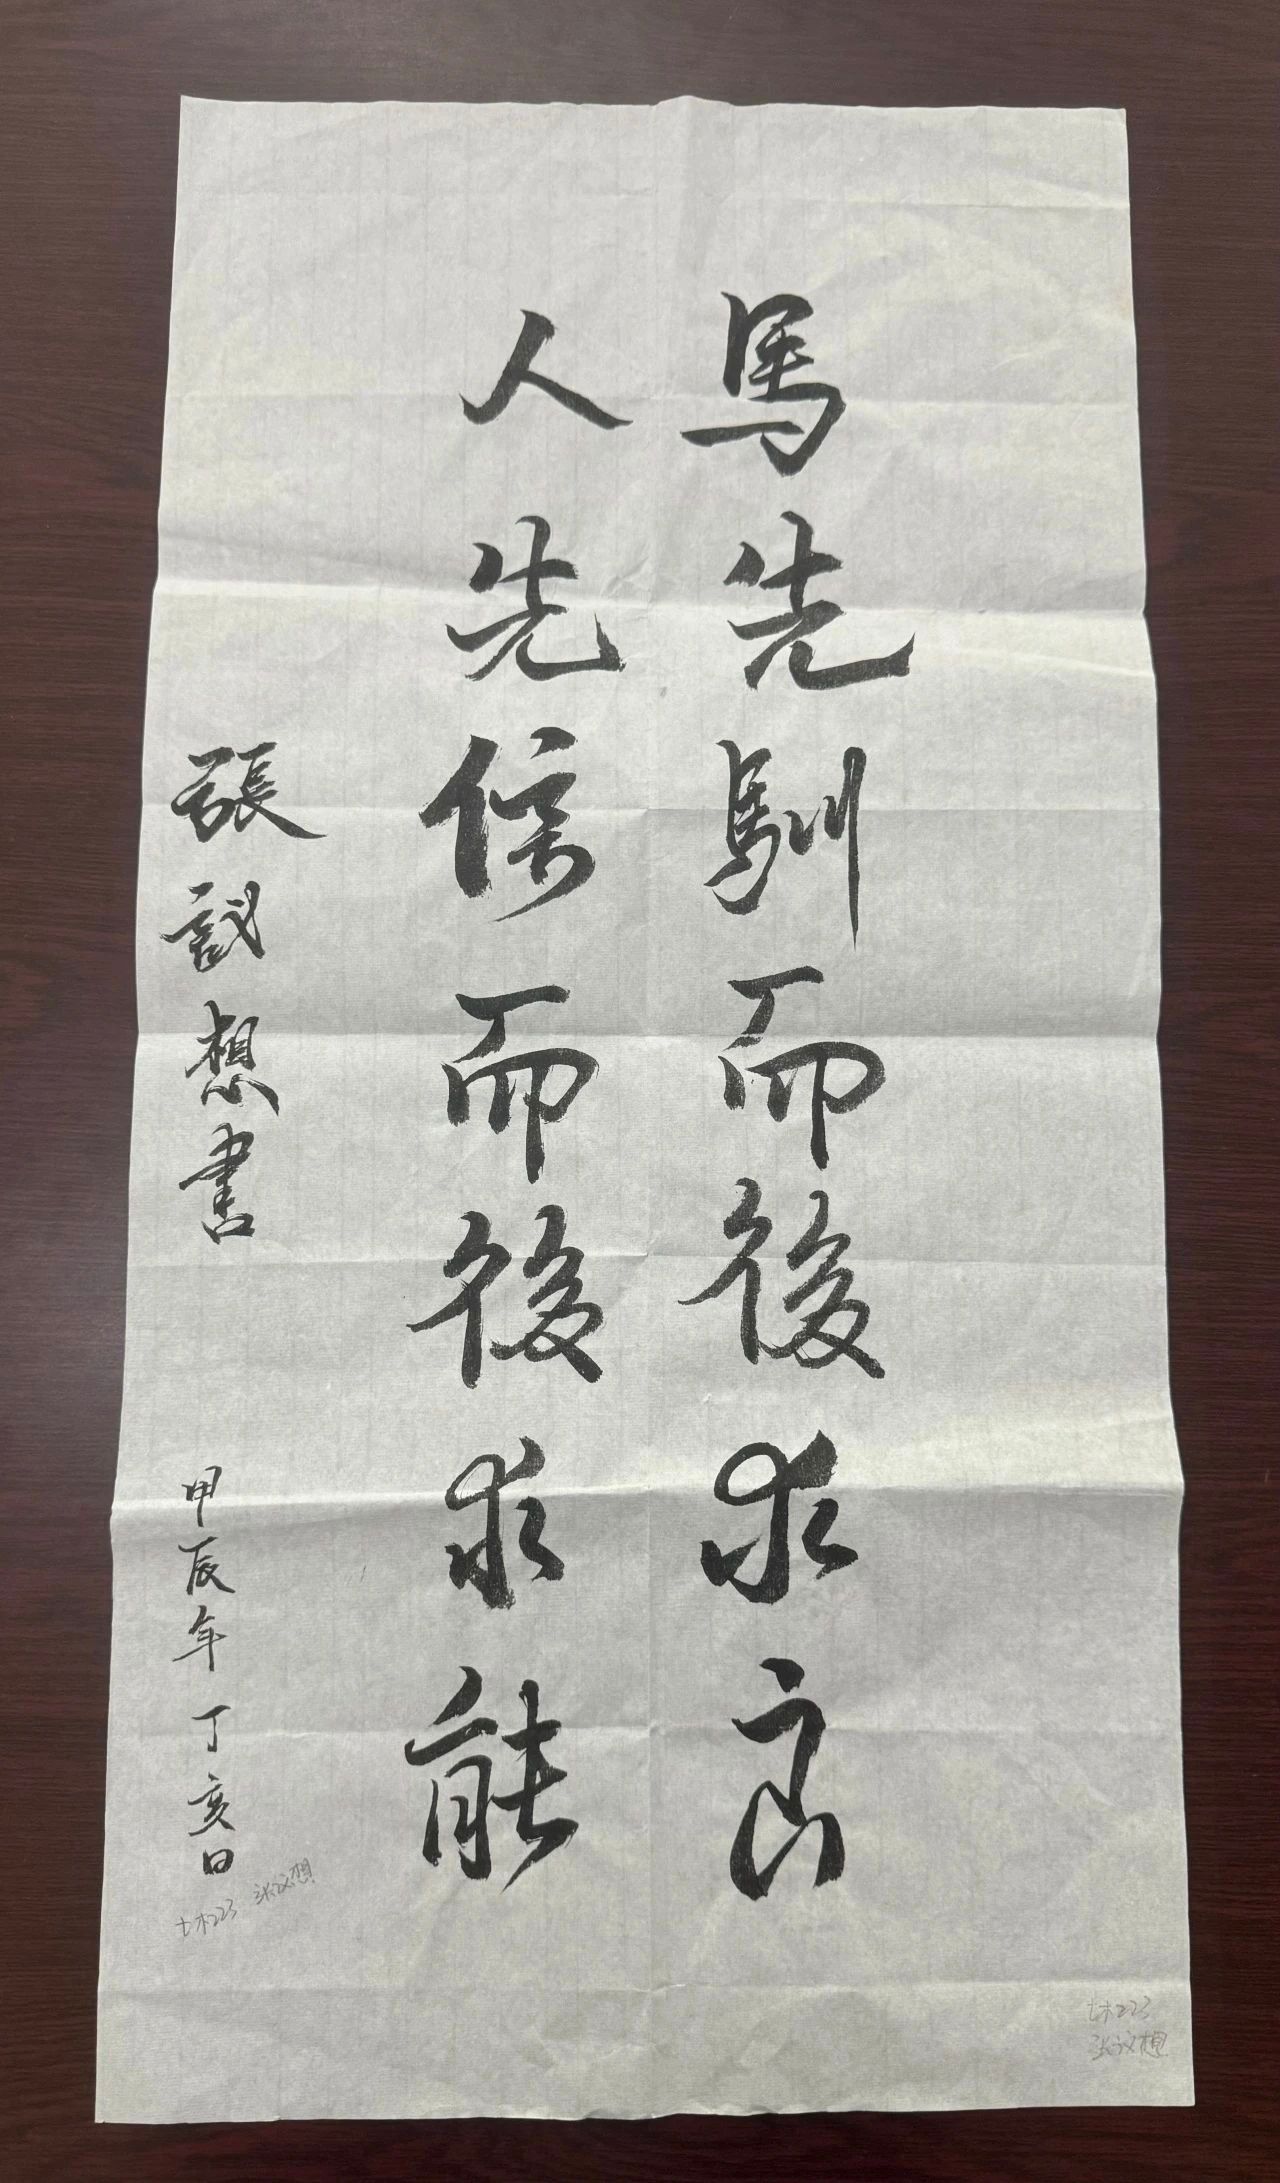 馬先馴而後求良
人先信而後求能
張議想書
甲辰年丁亥日
土木223 张议想
土木223
张议想